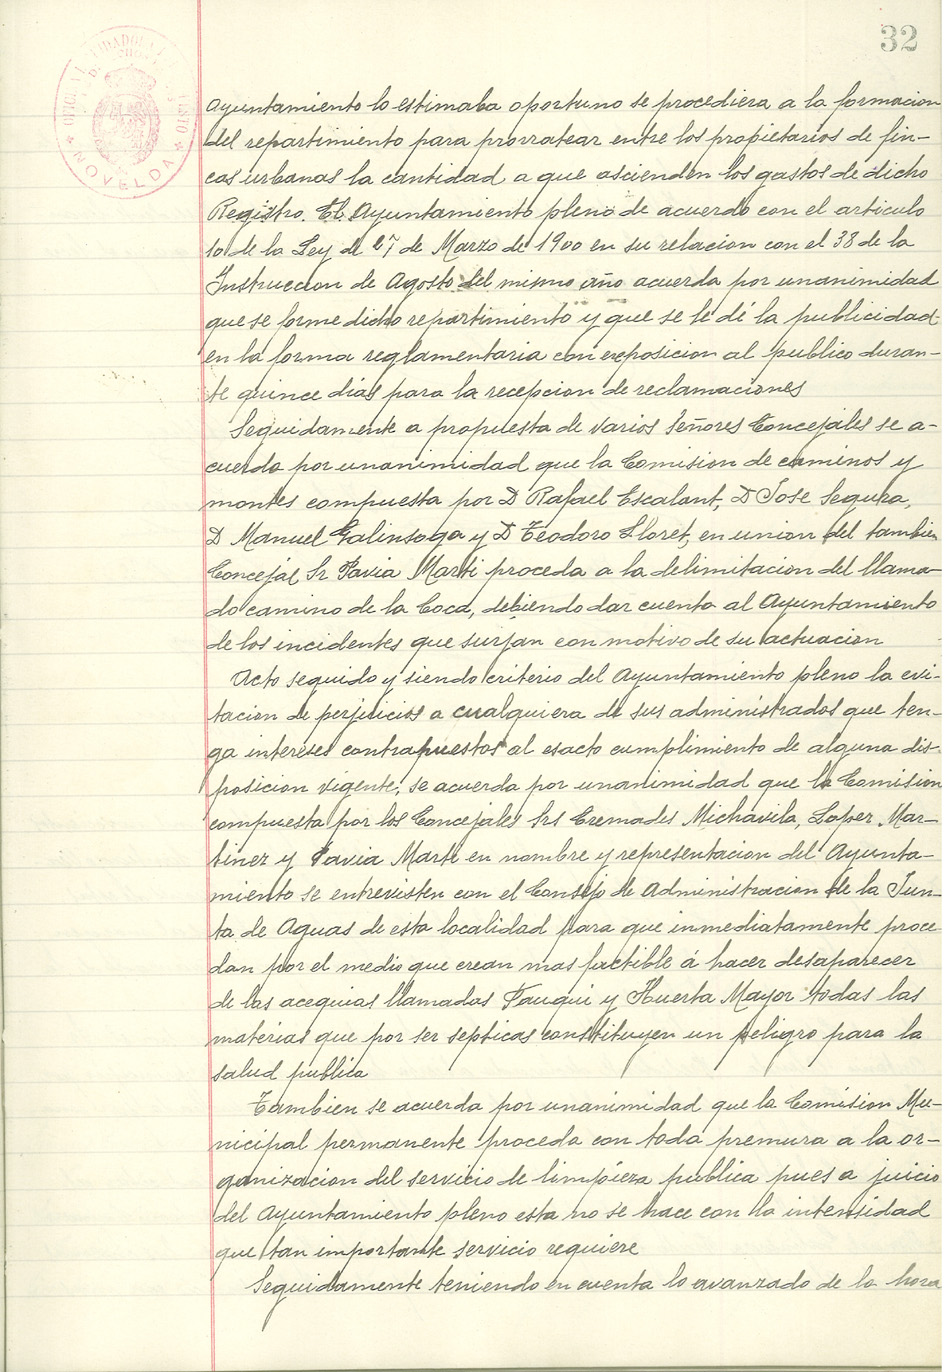 32
NOVELDA
ayuntamiento lo estimaba oportuno se procediera a la formacion
del repartimiento para prorratear entre los propietarios de fin-
cas urbanas la cantidad a que ascienden los gastos de dicho
Registro. El Ayuntamiento pleno de acuerdo con el articulo
10 de la Ley de 27 de Marzo de 1900 en su relacion con el 38 de la
Instruccion de Agosto del mismo año acuerda por unanimidad
que se forme dicho repartimiento y que se le dé la publicidad
en la forma reglamentaria con exposicion al publico duran-
te quince dias para la recepcion de reclamaciones
Seguidamente a propuesta de varios Señores Concejales se a-
cuerda por unanimidad que la Comision de caminos y
montes compuesta por D Rafael Escalant, D Jose Segura,
D Manuel Galinsoga y D Teodoro Lloret, en union del tambien
Concejal Sr Pavia Marti proceda a la delimitacion del llama-
do camino de la Coca, debiendo dar cuenta al Ayuntamiento
de los incidentes que surjan con motivo de su actuacion
Acto seguido y siendo criterio del Ayuntamiento pleno la evi-
tacion de perjuicios a cualquiera de sus administrados que ten-
ga intereses contrapuestos al esacto cumplimiento de alguna dis-
posicion vigente; se acuerda por unanimidad que la Comision
compuesta por los Concejales Srs Cremades Michavila, Lopez Mar-
tinez y Pavia Marti en nombre y representacion del Ayunta-
miento se entrevisten con el Consejo de Administracion de la Jun-
ta de Aguas de esta localidad para que inmediatamente proce
dan por el medio que crean mas factible á hacer desaparecer
de las acequias llamadas Fauqui y Huerta Mayor todas las
materias que por ser septicas constituyen un peligro para la
salud publica
Tambien se acuerda por unanimidad que la Comision Mu-
nicipal permanente proceda con toda premura a la or-
ganizacion del servicio de limpieza publica pues a juicio
del Ayuntamiento pleno esta no se hace con la intensidad
que tan importante servicio requiere
Seguidamente teniendo en cuenta lo avanzado de la hora